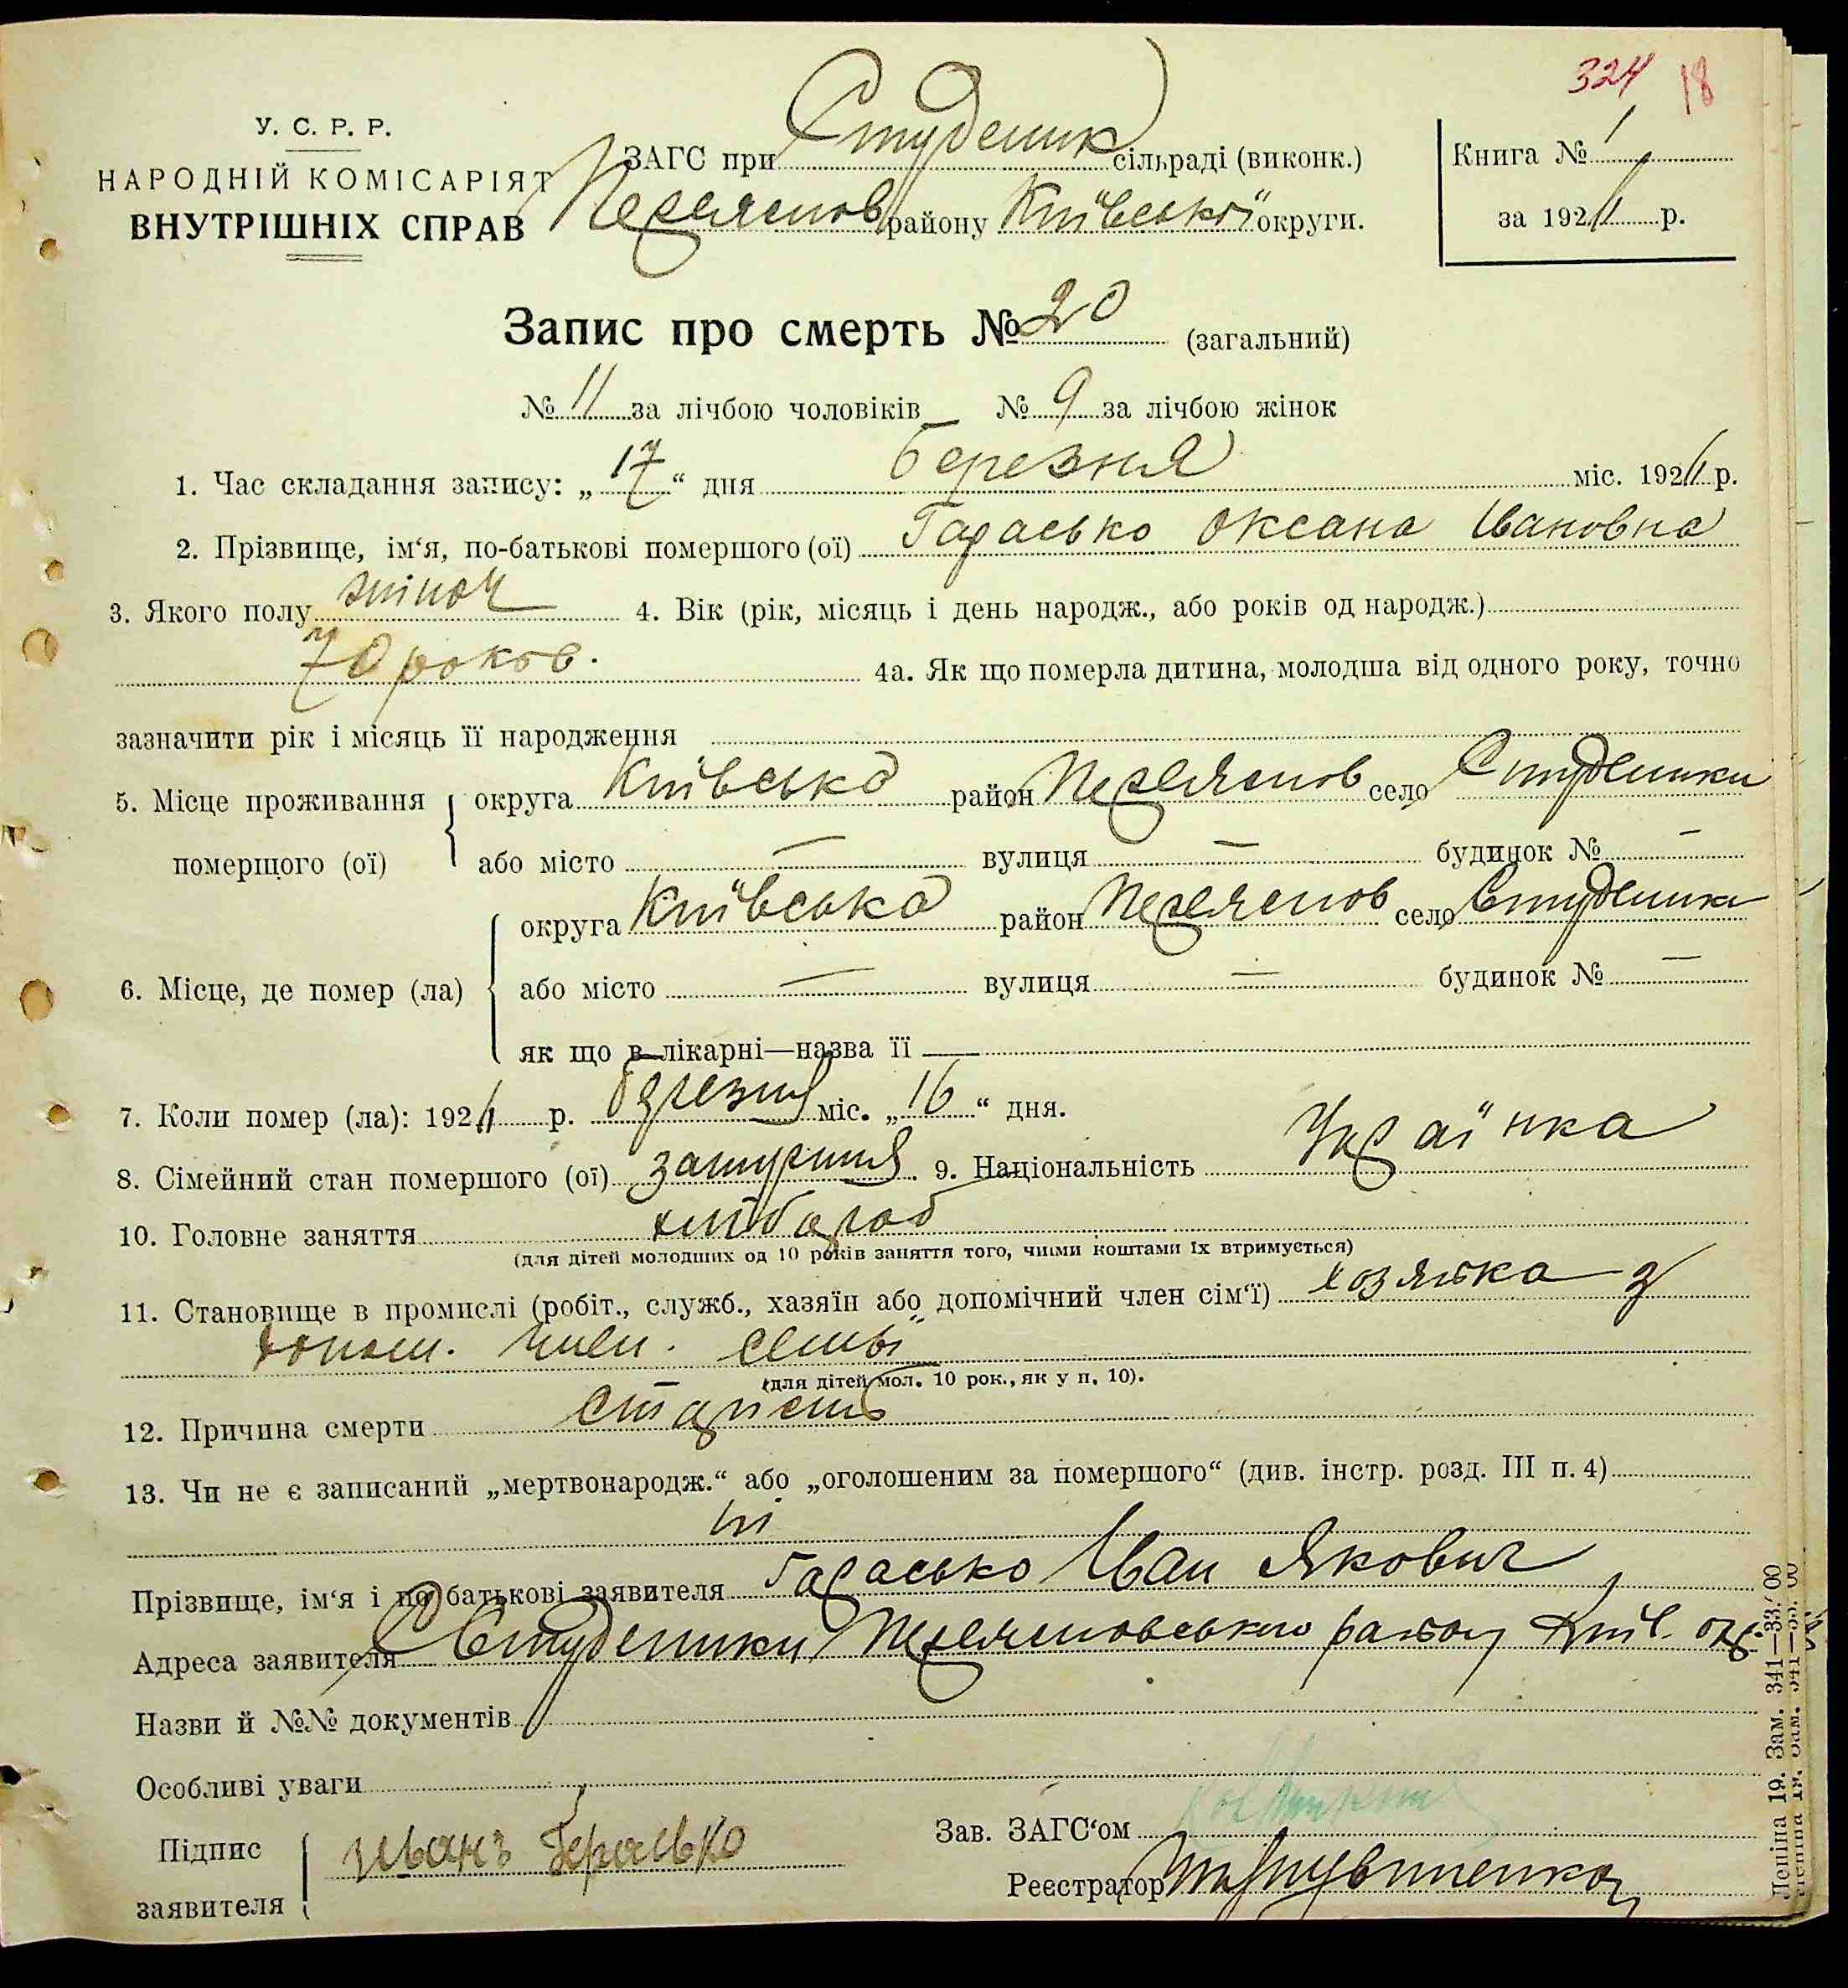 324 18
У. С. Р. Р.
НАРОДНІЙ КОМІСАРІЯТ
ВНУТРІШНІХ СПРАВ
ЗАГС при Студеник сільраді (виконк.)
Переяслов району Київської округи.
Книга № 1
за 192 р.
Запис про смерть № 20 (загальний)
№ 11 за лічбою чоловіків № 9 за лічбою жінок
1. Час складання запису: „ 17 “ дня Березня міс. 192 р.
2. Прізвище, ім‘я, по-батькові помершого (ої) Гарасько Оксана Івановна
3. Якого полу жіноч 4. Вік (рік, місяць і день народж., або років од народж.)
70 роков. 4а. Як що померла дитина, молодша від одного року, точно
зазначити рік і місяць її народження
5. Місце проживання помершого (ої) округа Київська район Переяслов село Студеники
або місто — вулиця — будинок № —
6. Місце, де помер (ла) округа Київська район Переяслов село Студеники
або місто — вулиця — будинок № —
як що в лікарні—назва її —
7. Коли помер (ла): 192 р. березня міс. „ 16 “ дня.
8. Сімейний стан помершого (ої) замужня 9. Національність Українка
10. Головне заняття хлібороб
(для дітей молодших од 10 років заняття того, чиїми коштами їх втримується)
11. Становище в промислі (робіт., служб., хазяїн або допомічний член сім‘ї) хозяйка з
допом. член. семьї
(для дітей мол. 10 рок., як у п. 10).
12. Причина смерти старість
13. Чи не є записаний „мертвонародж.“ або „оголошеним за помершого“ (див. інстр. розд. III п. 4)
ні
Прізвище, ім‘я і по батькові заявителя Гарасько Іван Якович
Адреса заявителя С Студеники Переясловського району Київ. окр.
Назви й №№ документів
Особливі уваги
Підпис заявителя Иванъ Гераско
Зав. ЗАГС‘ом
Реєстратор
Леніна 19. Зам. 341—33.